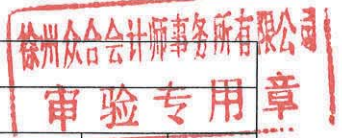 徐州众合会计师事务所有限公司
审验专用章